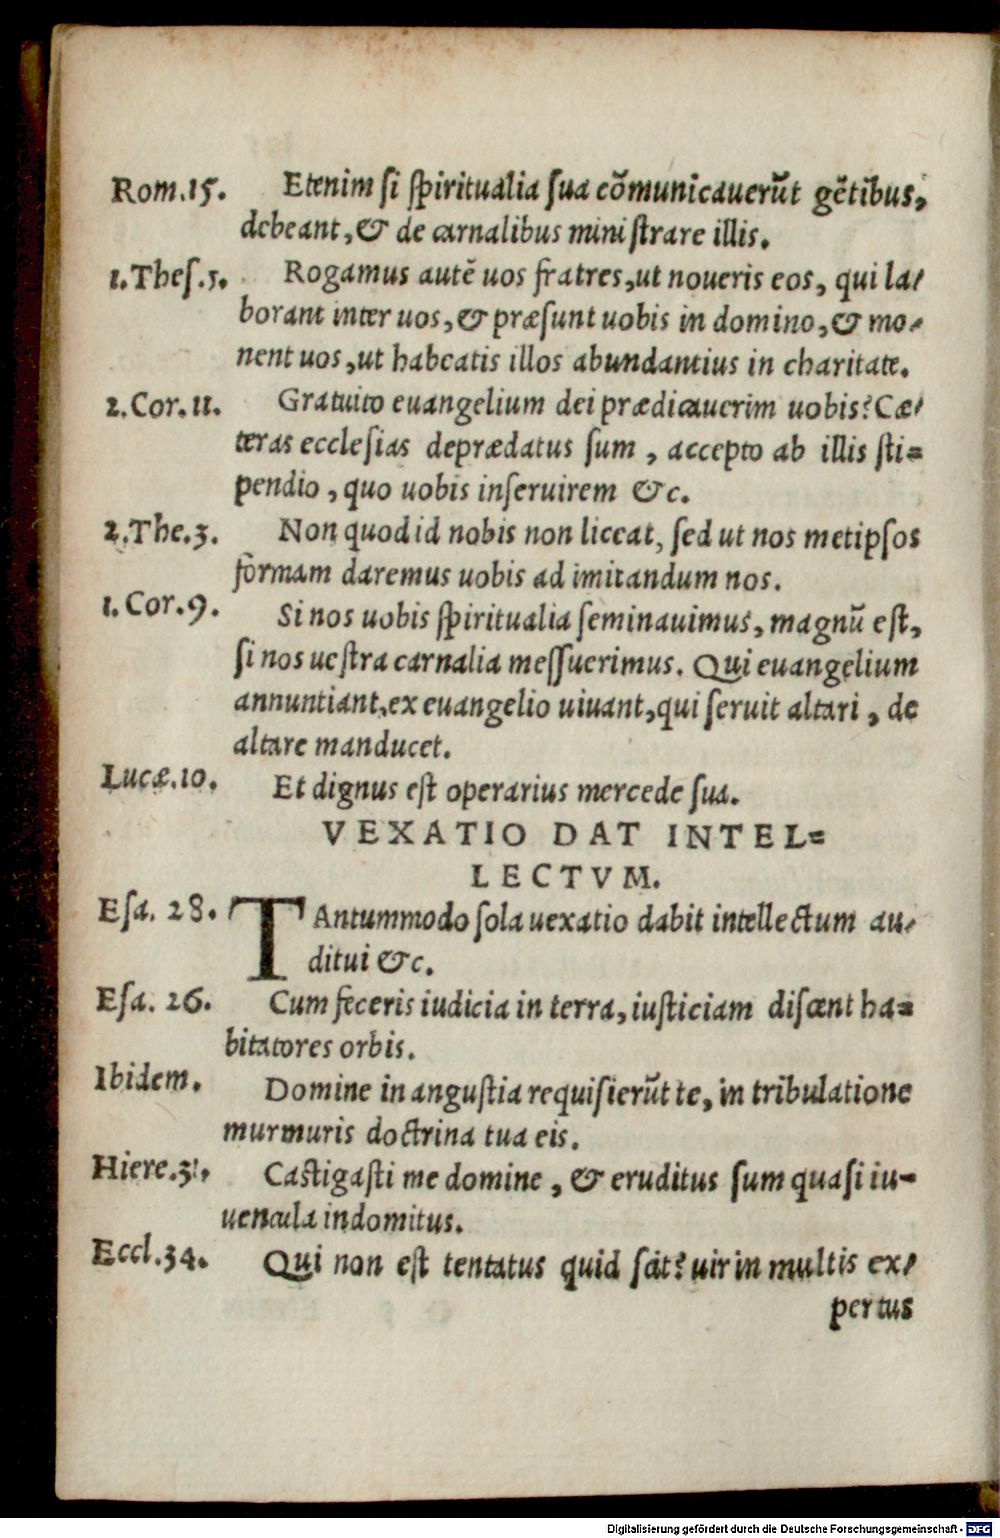 Rom.15. Etenim ſi ſpiritualia ſua cōmunicauerūt gētibus,
debeant, & de carnalibus miniſtrare illis.
1.Theſ.5. Rogamus autē uos fratres, ut noueris eos, qui la/
borant inter uos, & præſunt uobis in domino, & mo/
nent uos, ut habeatis illos abundantius in charitate.
2.Cor.11. Gratuito euangelium dei prædicauerim uobis? Cæ/
teras eccleſias deprædatus ſum, accepto ab illis ſti=
pendio, quo uobis inſeruirem &c.
2.The.3. Non quod id nobis non liceat, ſed ut nos metipſos
formam daremus uobis ad imitandum nos.
1.Cor.9. Si nos uobis ſpiritualia ſeminauimus, magnū eſt,
ſi nos ueſtra carnalia meſſuerimus. Qui euangelium
annuntiant, ex euangelio uiuant, qui ſeruit altari, de
altare manducet.
Lucæ.10. Et dignus eſt operarius mercede ſua.
VEXATIO DAT INTEL=
LECTVM.
Eſa. 28. TAntummodo ſola uexatio dabit intellectum au/
ditui &c.
Eſa. 26. Cum feceris iudicia in terra, iuſticiam diſcent ha=
bitatores orbis.
Ibidem. Domine in anguſtia requiſierūt te, in tribulatione
murmuris doctrina tua eis.
Hiere.31. Caſtigaſti me domine, & eruditus ſum quaſi iu-
uencula indomitus.
Eccl.34. Qui non eſt tentatus quid ſcit? uir in multis ex/
pertus
Digitalisierung gefördert durch die Deutsche Forschungsgemeinschaft - DFG